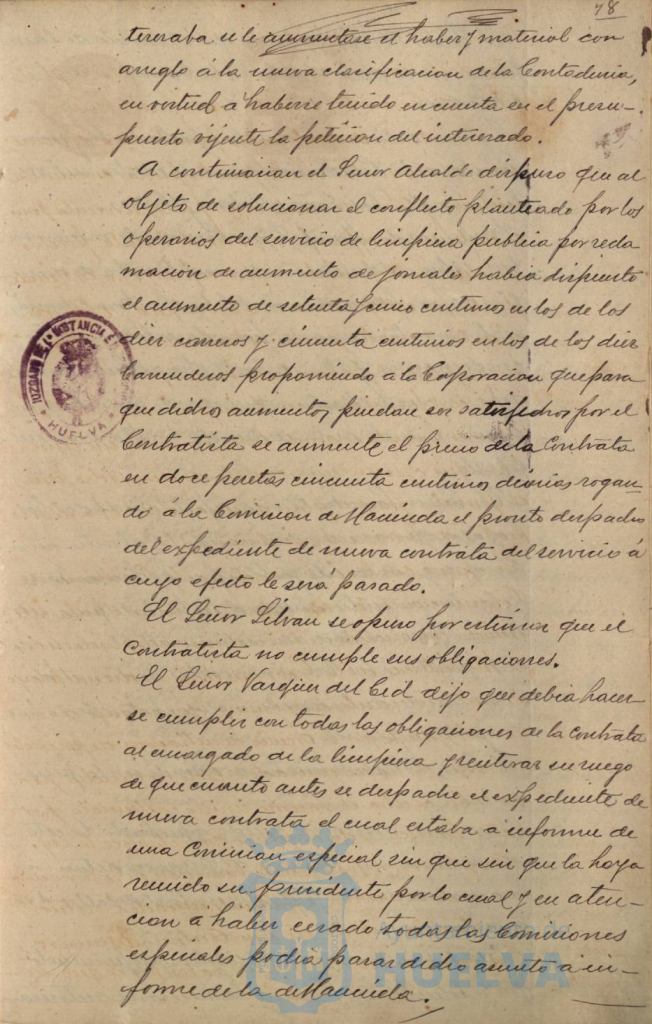 78
teresaba se le aumentase el haber y material con
arreglo á la nueva clasificacion de la Contaduria,
en virtud á haberse tenido en cuenta en el presu-
puesto vijente la peticion del interesado.
A continuacion el Señor Alcalde dispuso que al
objeto de solucionar el conflicto planteado por los
operarios del servicio de limpieza publica por recla
macion de aumento de jornales habia dispuesto
el aumento de setenta y cinco centimos en los de los
diez carreros y cincuenta centimos en los de los diez
barrenderos proponiendo á la Corporacion que para
que dichos aumentos puedan ser satisfechos por el
Contratista se aumente el precio de la Contrata
en doce pesetas cincuenta centimos diarias rogan-
do á la Comision de Hacienda el pronto despacho
del expediente de nueva contrata del servicio á
cuyo efecto le será pasado.
El Señor Silvan se opuso por estimar que el
Contratista no cumple sus obligaciones.
El Señor Vazquez del Cid dijo que debia hacer-
se cumplir con todas las obligaciones de la contrata
al encargado de la limpieza y reiterar su ruego
de que cuanto antes se despache el expediente de
nueva contrata el cual estaba á informe de
una Comision especial sin que sin que la haya
reunido su presidente por lo cual y en aten-
cion á haber cesado todas las Comisiones
especiales podia pasar dicho asunto á in-
forme de la de Hacienda.
JUZGADO DE 1ª INSTANCIA E
HUELVA
HUELVA